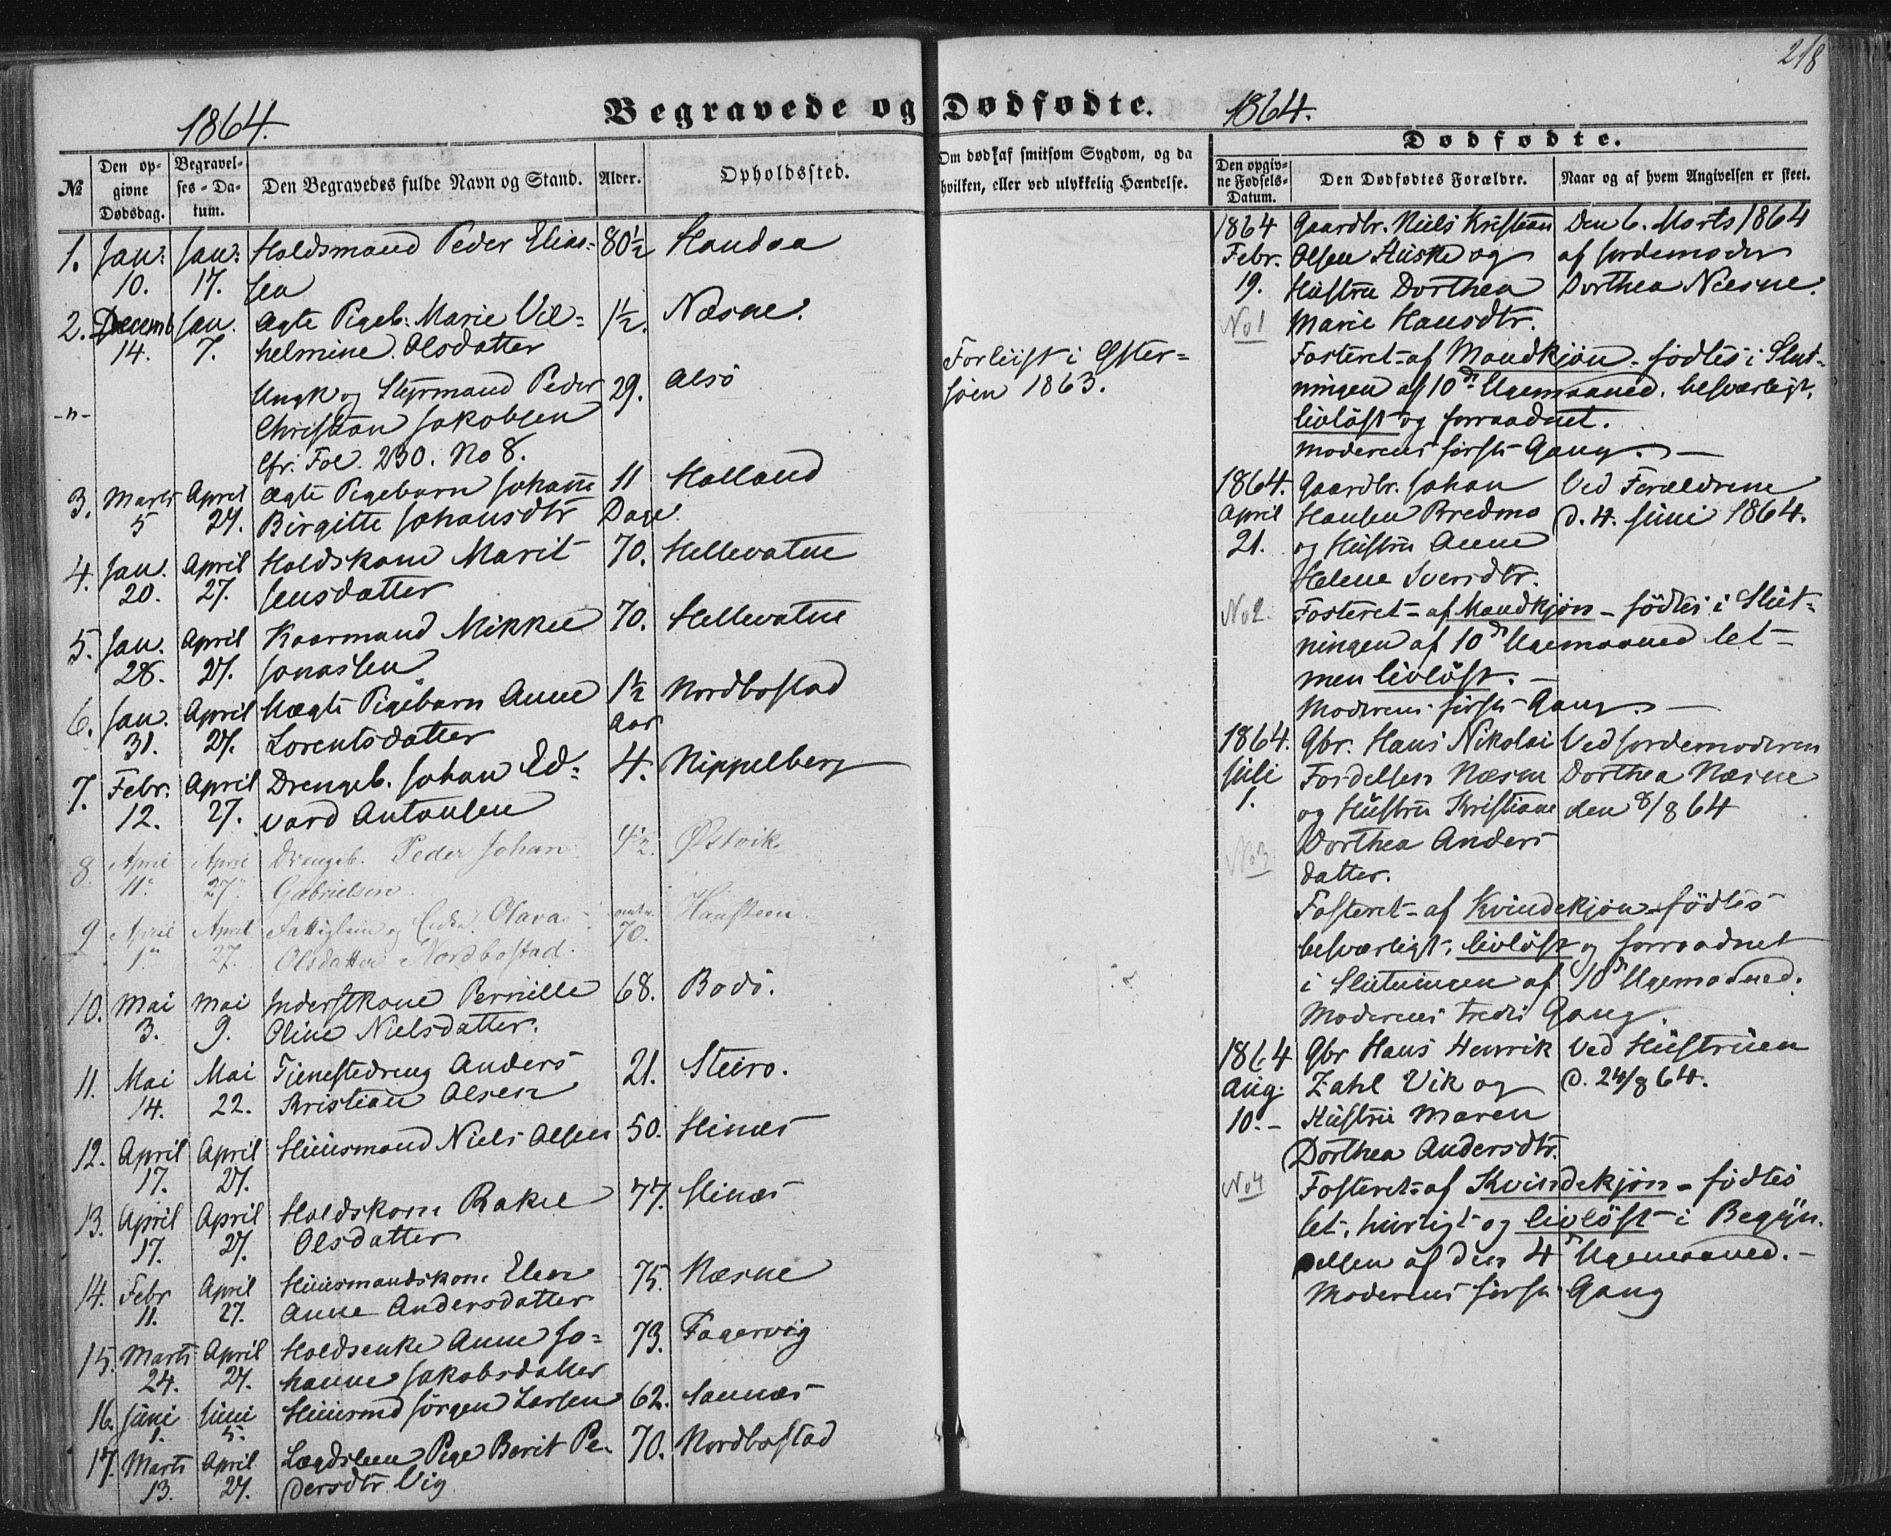 218
1864.
Begravede og Dødfødte.
1864.
№
Den opgivne Dødsdag.
Begravelses-Datum.
Den Begravedes fulde Navn og Stand.
Alder.
Opholdssted.
Om død af smitsom Sygdom, og da
hvilken, eller ved ulykkelig Hændelse.
Dødfødte.
Den opgivne Fødsels-Datum.
Den Dødfødtes Forældre.
Naar og af hvem Angivelsen er skeet.
1. Jan: Jan: Holdsmand Peder Elias- 80½ Handaa
10. 17. sen
2. Decemb Jan. Ægte Pigeb. Marie Vil- 1½. Næsne.
14. 7. helmine Olsdatter
-"- Ungk og Styrmand Peder 29. Alsö Forliist i Öster-
Christian Jakobsen söen 1863.
cfr. Fol. 230. No 8.
3. Marts April Ægte Pigebarn Johanne 11 Halland
5 27. Birgitte Johansdtr Dage
4. Jan. April Holdskone Marit 70. Hellevatne
20. 27. Jensdatter
5. Jan. April Kaarmand Mikkel 70. Hellevatne
28. 27. Jonassen
6. Jan. April Uægte Pigebarn Anne 1½ Nordbostad
31. 27. Lorentsdatter Aar
7. Febr. April Drengeb. Johan Ed- 4. Nippelberg
12. 27. vard Antonsen
8. April April Drengeb. Peder Johan 4½. Østvik
11. 27. Gabrielsen
9 April April Olava 70. Hansteen.
1. 27. Olsdatter Nordbostad.
10. Mai Mai Inderstkone Pernille 68. Bodö.
3. 9. Oline Nielsdatter.
11. Mai Mai Tjenestedreng Anders 21. Steiro.
14. 22. Kristian Olsen
12. April April Huusmand Niels Olsen 50. Hinæs
17. 27.
13. April April Holdskone Rakel 77. Hinæs
17. 27. Olsdatter
14. Febr April Huusmandskone Elen 75. Næsne
11. 27. Anne Andersdatter
15. Marts April Holdsenke Anne Jo- 73. Fagervig
24. 27. hanne Jakobsdatter
16. Juni Juni Huusmd Jörgen Larsen 62. Sannæs
1. 5.
17. Marts April Lægdslem Pige Berit Pe- 70. Nordbostad
13. 27. dersdtr. Vig
1864 Gaardbr. Niels Kristian Den 6. Marts 1864
Febr. Olsen Huske og af Jordemoder
19. Hustru Dorthea Dorthea Næsne.
No 1 Marie Hansdtr.
Fosteret af Mandkjön födtes i Slut-
ningen af 10de Ugemaaned, besværligt,
livlöst og forraadnet.
Moderens förste Gang.
1864. Gaardbr. Johan Ved Forældrene
April Hansen Bredmo d. 4. Juni 1864.
21. og Hustru Anne
Helene Iversdtr.
No 2. Fosteret af Mandkjön födtes i Slut-
ningen af 10de Ugemaaned let
men livlöst.
Moderens förste Gang.
1864. Gbr. Hans Nikolai Ved Jordemoderen
Juli Fordelsen Næsne Dorthea Næsne
1. og Hustru Kristiane den 8/8 64
No 3 Dorthea Anders
datter.
Fosteret af Kvindekjön födtes
besværligt, livlöst og forraadnet
i Slutningen af 10de Ugemaaned.
Moderens tredie Gang.
1864 Gbr Hans Henrik Ved Hustruen
Aug. Zahl Vik og d. 24/8 64.
10. Hustru Maren
Dorthea Andersdtr.
No 4 Fosteret af Kvindekjön födtes
let, hurtigt og livlöst i Begyn-
delsen af den 4de Ugemaaned.
Moderens förste Gang